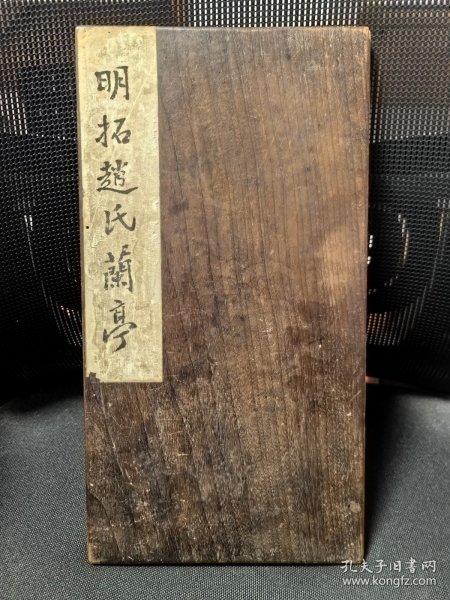 明拓趙氏蘭亭
孔夫子旧书网
www.kongfz.com